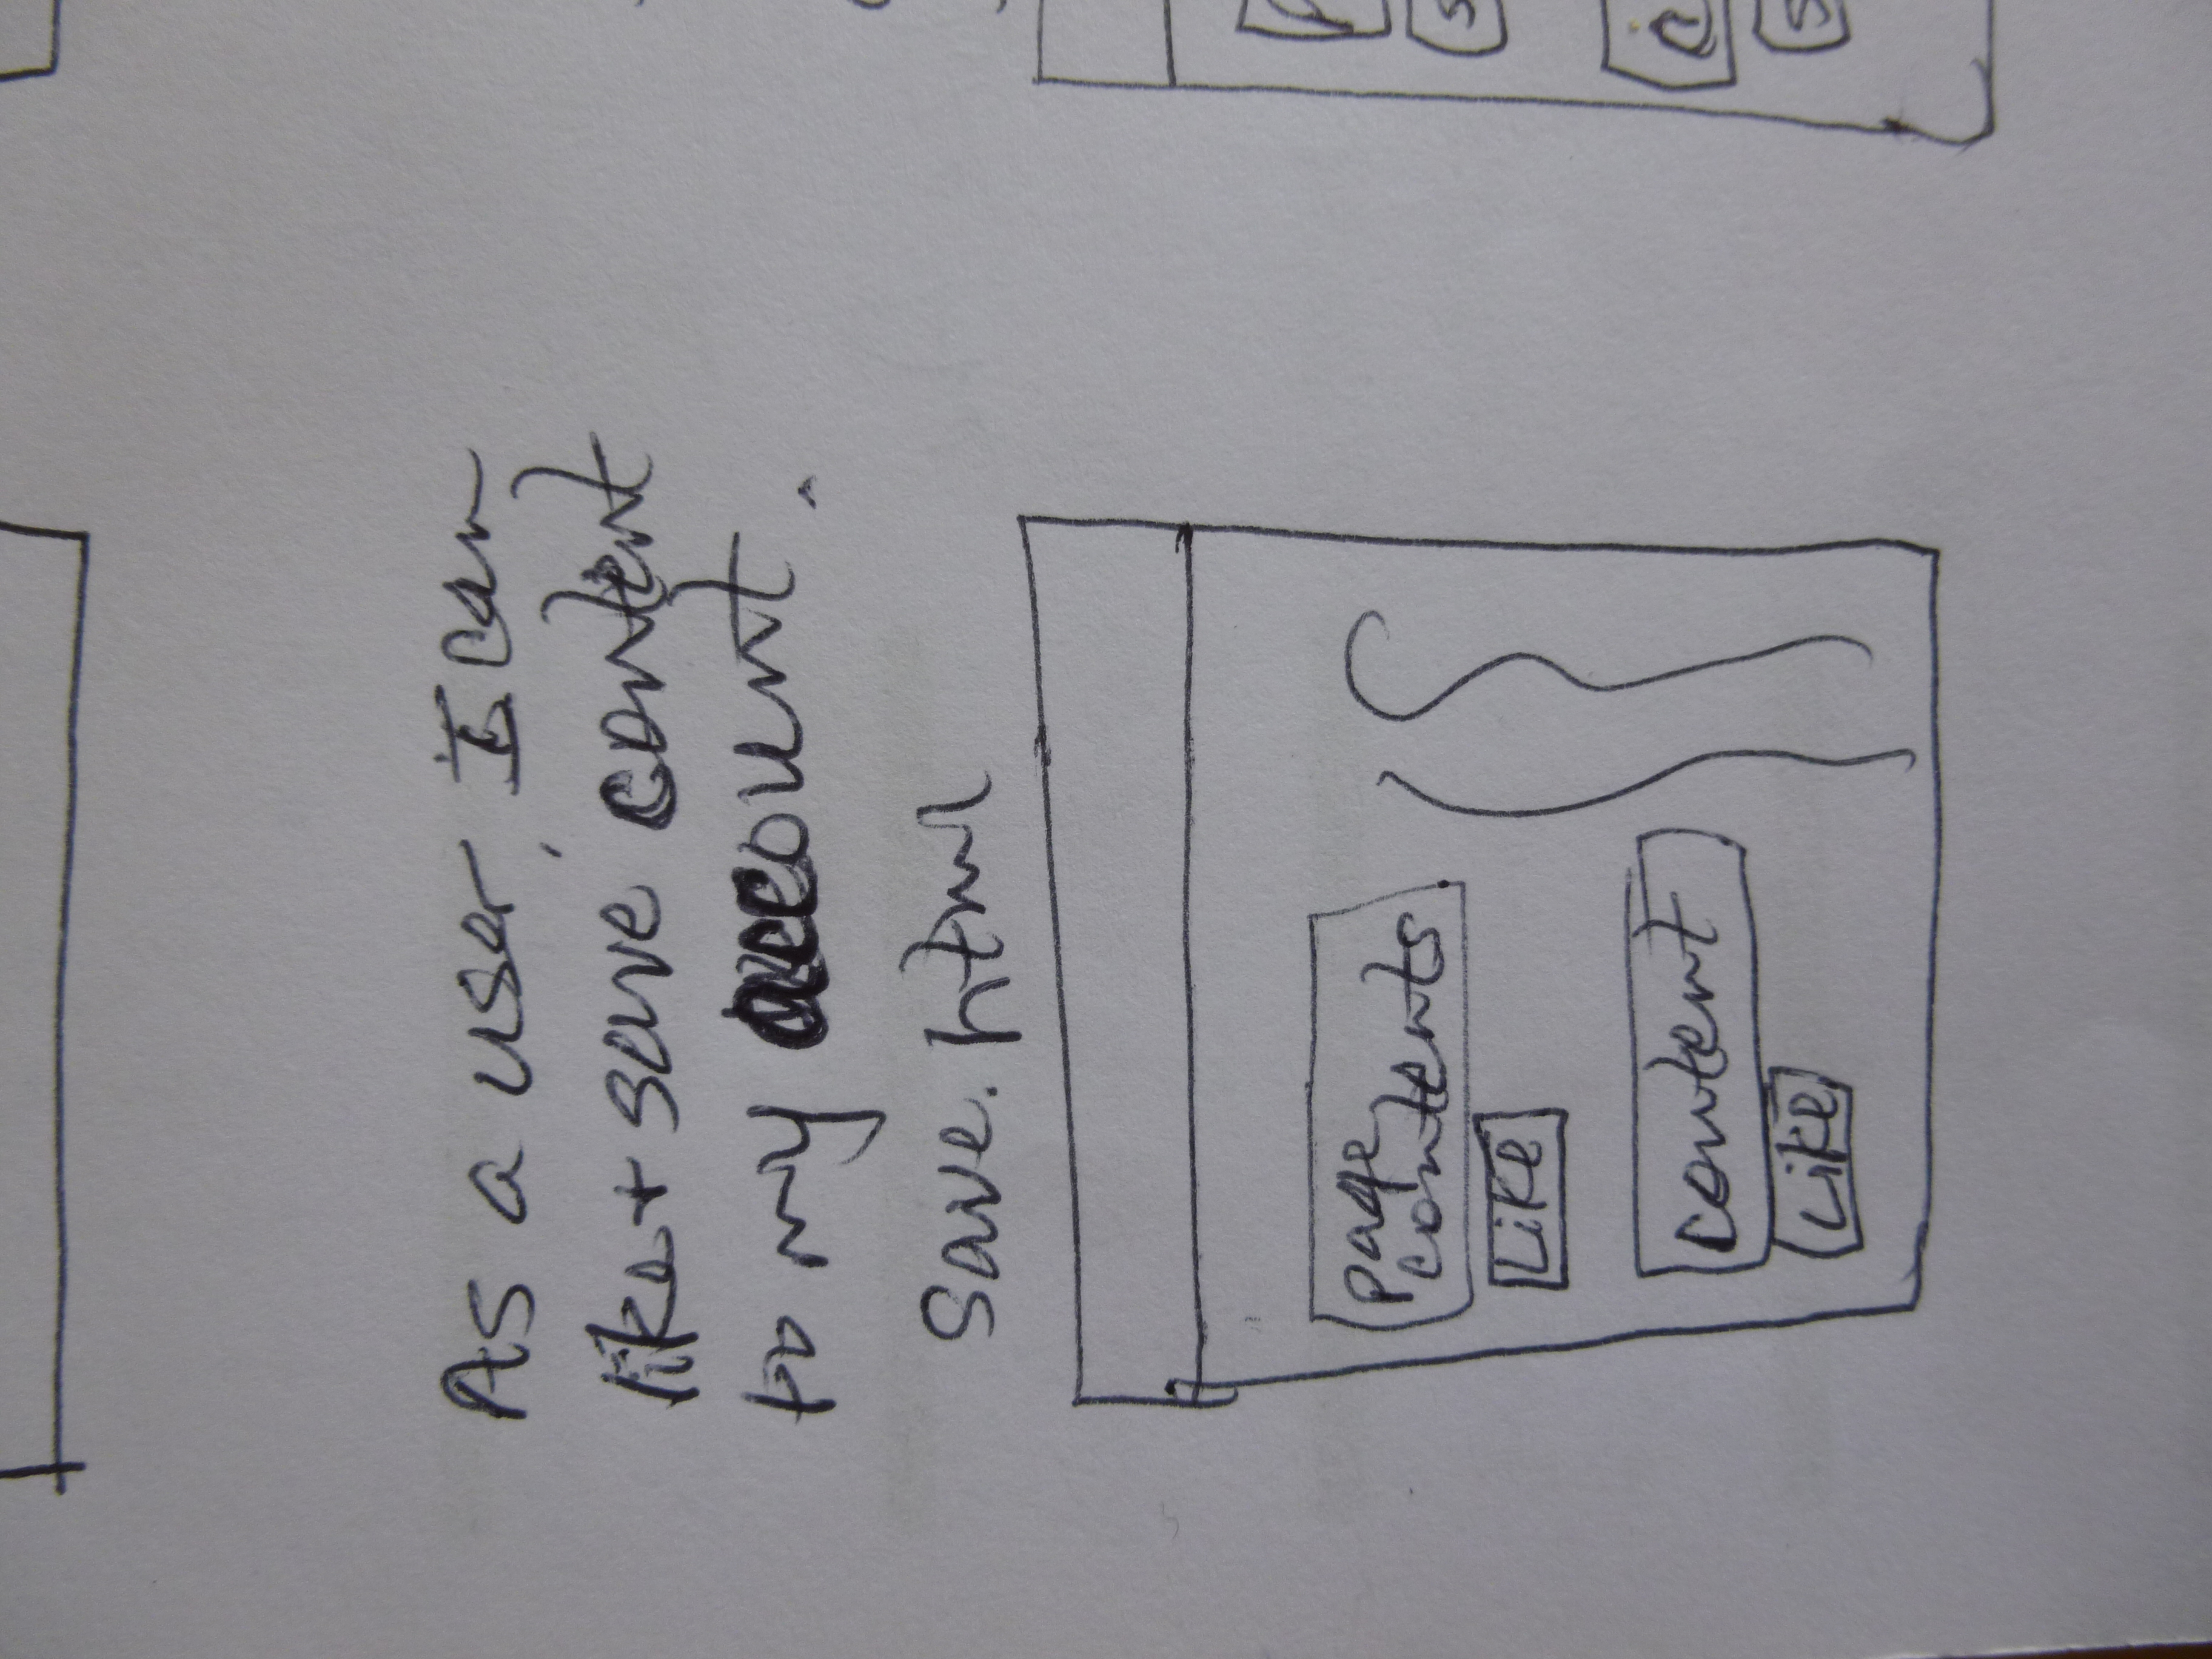 As a user, I can
like + save content
to my account.
save.html
page
contents
Like
content
Like